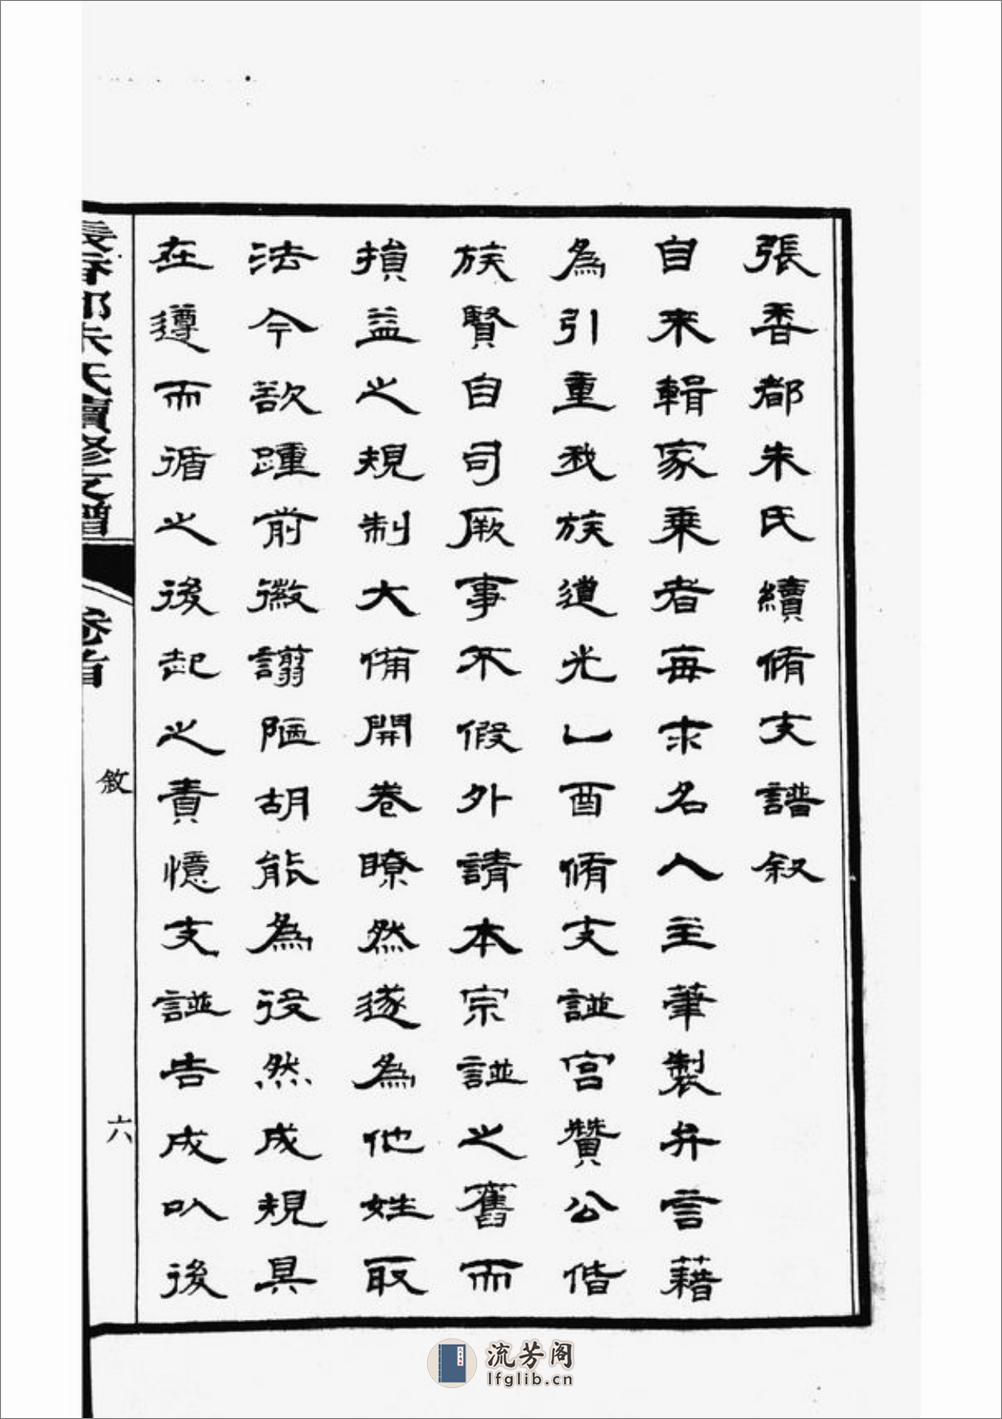 張香都朱氏續脩支譜叙
自来輯家乗者每求名人主筆製弁言藉
為引重我族道光乚酉脩支譜宮贊公偕
族賢自司厥事不假外請本宗譜之舊而
損益之規制大備開卷瞭然遂為他姓取
法今欲踵前徽謭陋胡能為役然成規具
在遵而循之後起之責憶支譜告成㕥後
張香都朱氏續修支譜
卷首
敘
六
流芳阁
lfglib.cn